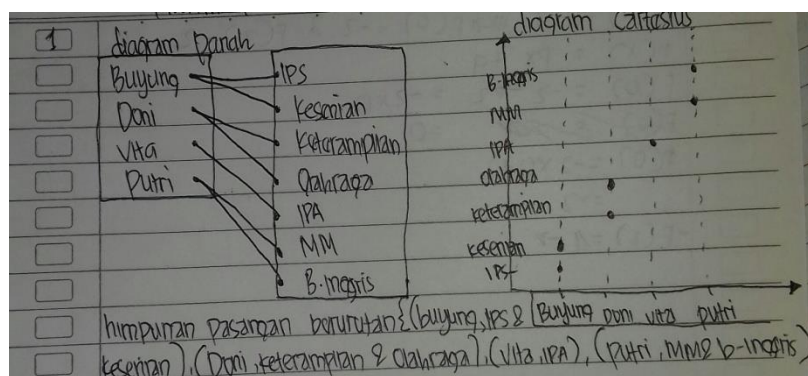 1
diagram panah
Buyung
Doni
Vita
Putri
IPS
Kesenian
Keterampilan
Olahraga
IPA
MM
B.Inggris
diagram Cartesius
B-Inggris
MM
IPA
Olahraga
keterampilan
kesenian
IPS
Buyung Doni vita putri
himpunan pasangan berurutan {(buyung, IPS &
kesenian), (Doni, keterampilan & olahraga), (Vita, IPA), (putri, MM & b-inggris)